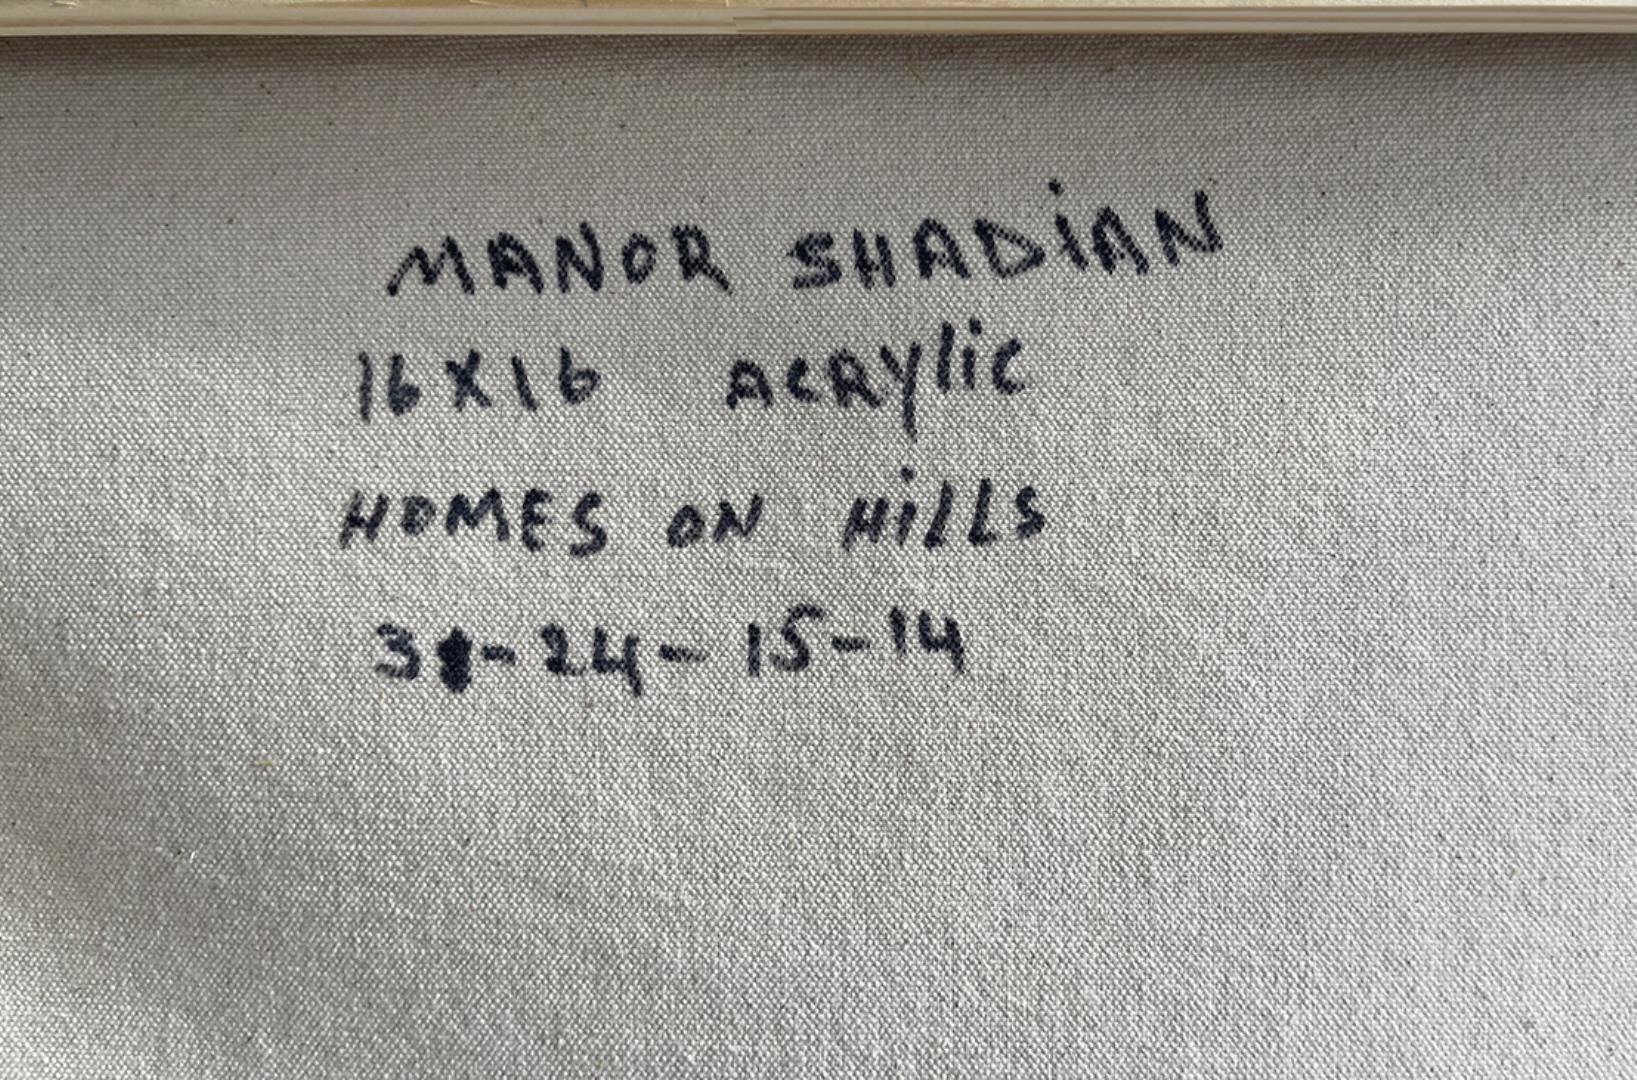 MANOR SHADiAN
16X16 ACRYlic
HOMES ON HiLLS
31-24-15-14